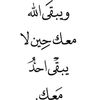 ويبقَى الله
معك حِين لا
يبقَّى احدُ
مَعك.